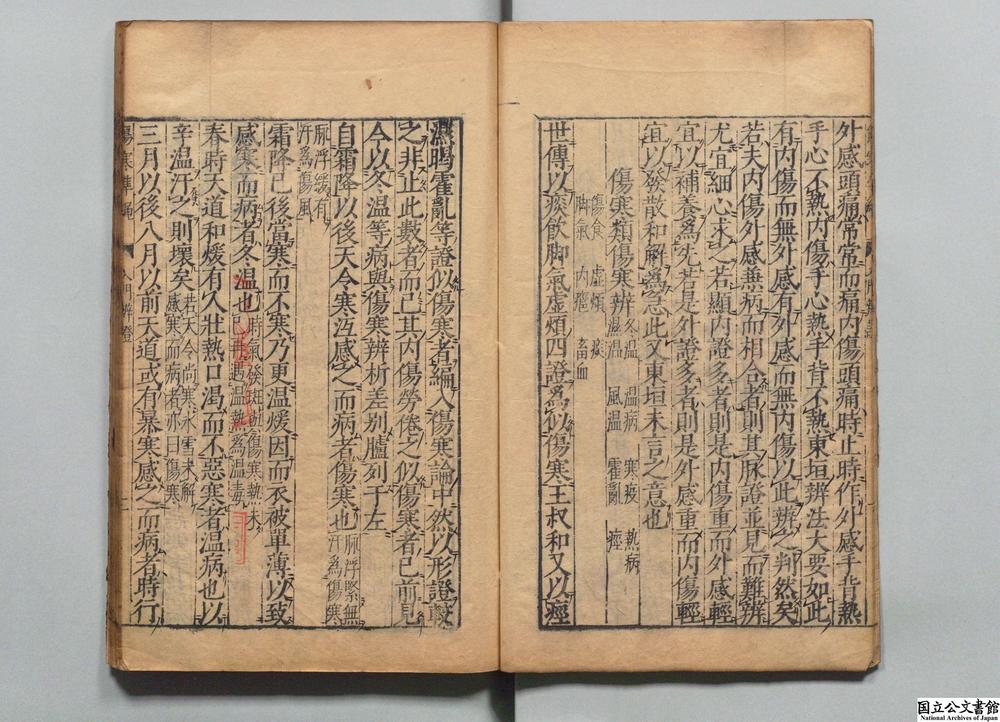 外感頭痛常常而痛内傷頭痛時止時作外感手背熱
手心不熱内傷手心熱手背不熱東垣辨法大要如此
有内傷而無外感有外感而無内傷以此辨之判然矣
若夫内傷外感兼病而相合者則其脉證並見而難辨
尤宜細心求之若顯内證多者則是内傷重而外感輕
宜以補養為先若是外證多者則是外感重而内傷輕
宜以發散和解為急此又東垣未言之意也
傷寒類傷寒辨 冬温 温病 寒疫 熱病
濕温 風温 霍亂 痙
傷食 虚煩 痰
脚氣 内癰 畜血
世傳以痰飲脚氣虚煩四證為似傷寒王叔和又以痙
濕暍霍亂等證似傷寒者編入傷寒論中然以形證較
之非止此數者而已其内傷勞倦之似傷寒者已前見
今以冬温等病與傷寒辨析差别臚列于左
自霜降以後天令寒沍感之而病者傷寒也 脉浮緊無
汗為傷寒
脉浮緩有
汗為傷風
霜降已後當寒而不寒乃更温煖因而衣被單薄以致
感寒而病者冬温也 時氣發斑 傷寒熱未
已再遇温熱為温毒
春時天道和煖有人壯熱口渴而不惡寒者温病也以
辛温汗之則壞矣 若天令尚寒氷雪未解
感寒而病者亦曰傷寒
三月以後八月以前天道或有暴寒感之而病者時行
国立公文書館
National Archives of Japan